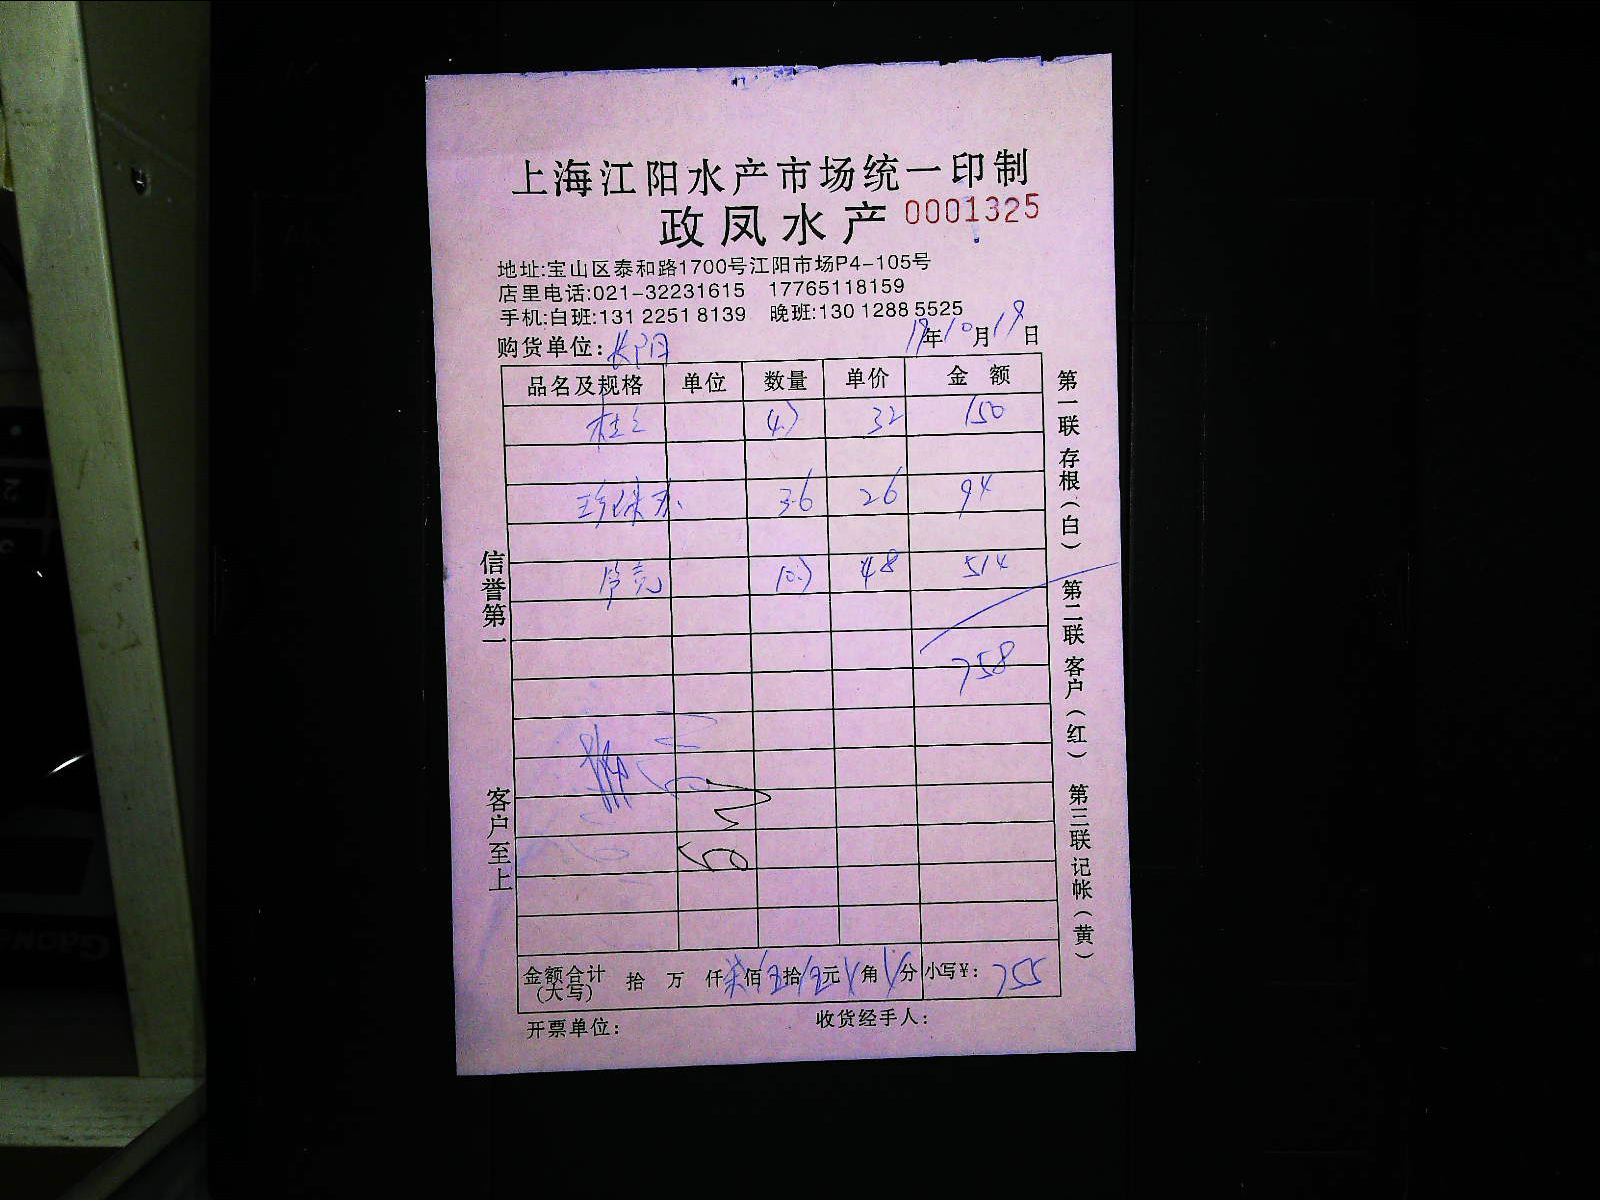 上海江阳水产市场统一印制
政凤水产 0001325
地址:宝山区泰和路1700号江阳市场P4-105号
店里电话:021-32231615 17765118159
手机:白班:131 2251 8139 晚班:130 1288 5525
购货单位: 长阳 19年10月19日
品名及规格 单位 数量 单价 金额
桂 4.7 32 150
珍珠 3.6 26 94
10.7 48 514
758
金额合计(大写) 拾 万 仟 柒佰伍拾伍元 角 分 小写¥: 755
开票单位: 收货经手人:
信誉第一
客户至上
第一联 存根(白) 第二联 客户(红) 第三联 记帐(黄)